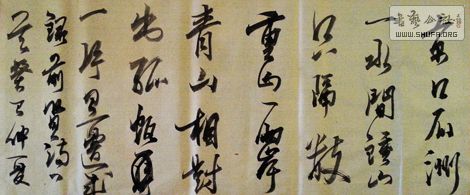 京口瓜洲
一水間鍾山
只隔數
重山兩岸
青山相對
出孤帆
一片日邊來
錄前賢詩
仲夏
书艺公社
WWW.SHUFA.ORG